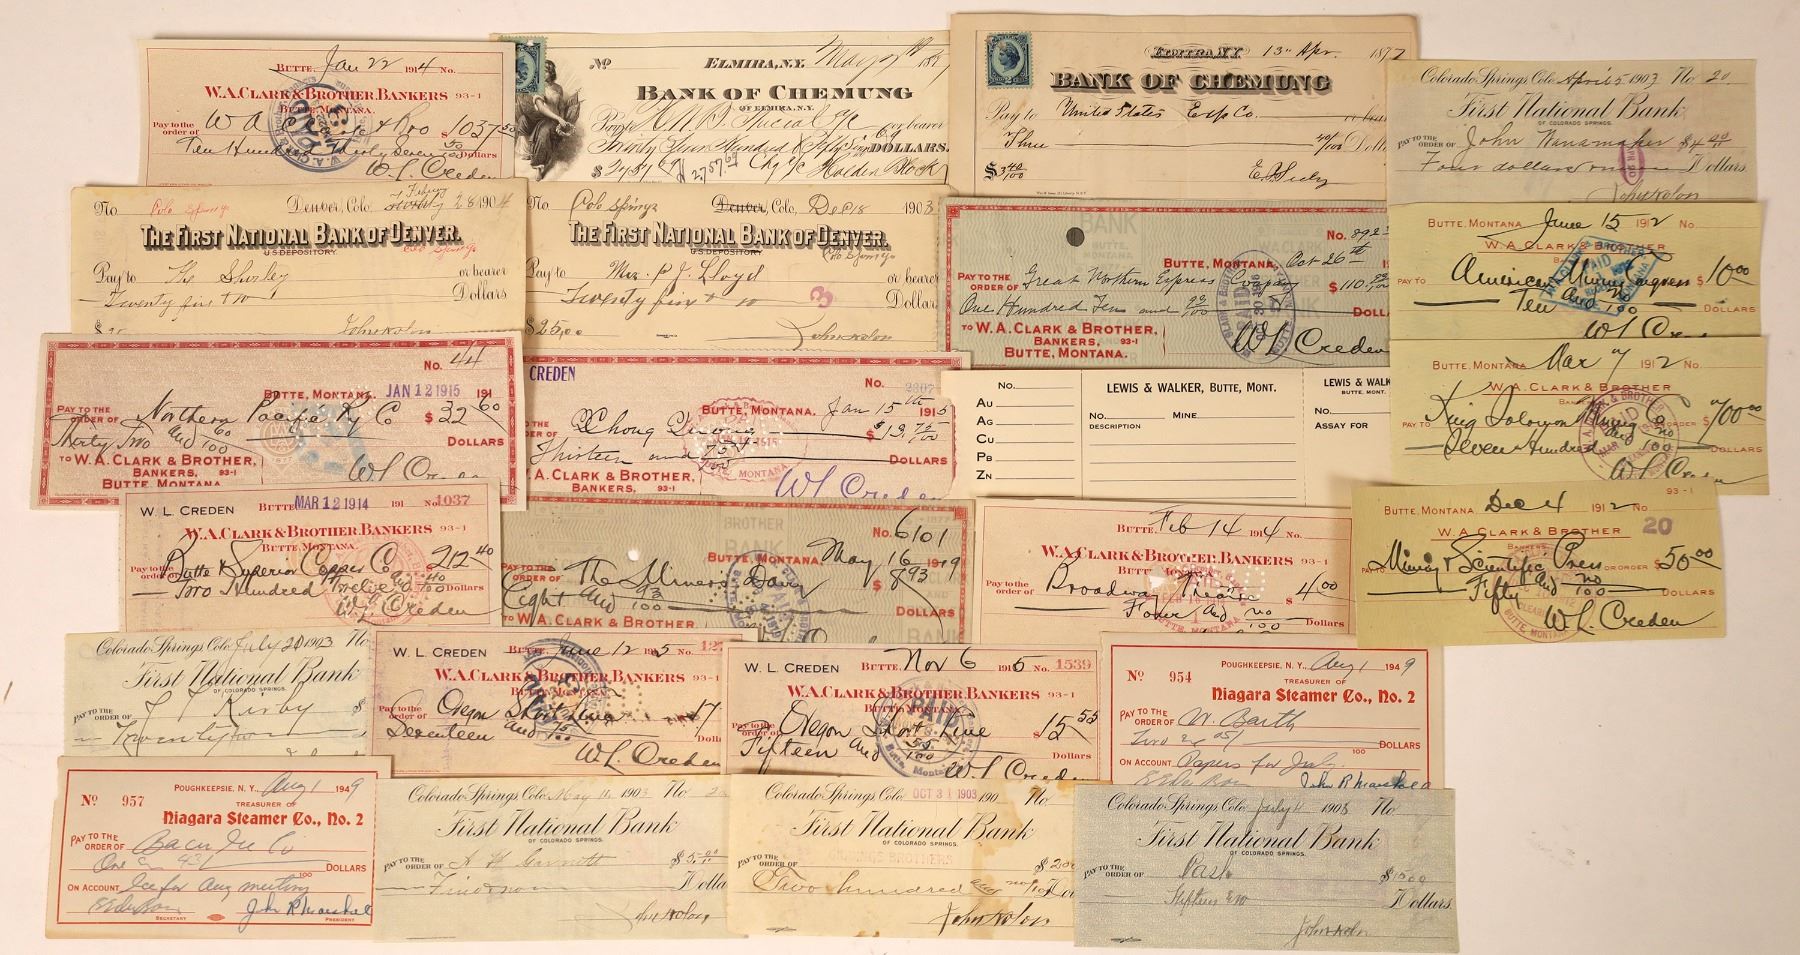 Butte, Jan 22 1914 No.
W.A. Clark & Brother, Bankers 93-1
Butte, Montana.
Pay to the order of W A Clark & Bro $1037.50
Ten Hundred Thirty Seven 50 Dollars
W. L. Creden
No Elmira, N.Y. May
Bank of Chemung
of Elmira, N.Y.
or bearer
Dollars.
$2757
Elmira, N.Y. 13" Apr. 1877
Bank of Chemung
Pay to United States Exp Co.
Three 40/100 Dolla
$3 40/100
Colorado Springs, Colo. April 5 1903 No 20
First National Bank
of Colorado Springs.
Pay to the order of John Wanamaker $4.00
Four dollars Dollars.
No Colo Springs Denver, Colo. Feby 28 1904
The First National Bank of Denver.
U.S. Depository.
Colo Springs
Pay to The Shirley or bearer
Twenty five Dollars
No Colo Springs Denver, Colo, Dec 18 1903
The First National Bank of Denver.
U.S. Depository.
Colo Springs
Pay to Mrs. P. J. Lloyd or bearer
Twenty five Dollars
$25.00
No. 892
Oct 26th
Pay to the order of Great Northern Express Company $110.
One Hundred Ten and
To W.A. Clark & Brother,
Bankers, 93-1
Butte, Montana.
W L Creden
Butte, Montana, June 15 1912 No.
W.A. Clark & Brother
Pay to American Mining Congress $10.00
Ten and no/100 Dollars
W L Creden
No. 44
Butte, Montana, JAN 12 1915 191
Pay to the order of Northern Pacific Ry Co $32 60
Thirty Two and 60/100 Dollars
To W.A. Clark & Brother,
Bankers, 93-1
Butte, Montana
W L Creden
CREDEN No. 2207
Butte, Montana, Jan 15th 1915
Thirteen and 75/100 Dollars
.A. Clark & Brother,
Bankers, 93-1
W L Creden
No.
Au
Ag
Cu
Pb
Zn
Lewis & Walker, Butte, Mont.
No. Mine
Description
Lewis & Walk
Butte, Mont.
No.
Assay for
Butte, Montana Mar 7 1912 No.
W.A. Clark & Brother
Pay to King Solomon Mining Co or order $700.00
Seven Hundred and no/100 Dollars
W L Creden
W. L. Creden Butte, MAR 12 1914 191 No. 1037
W.A. Clark & Brother, Bankers 93-1
Butte, Montana
Pay to the order of Butte & Superior Copper Co $212.40
Two Hundred Twelve and 40/100 Dollars
W. L. Creden
No. 6101
Butte, Montana, May 16 1919
Pay to the order of The Miners Savg $8 93
Eight and 93/100 Dollars
To W.A. Clark & Brother
Butte, Feb 14 1914 No.
W.A. Clark & Brother, Bankers 93-1
Butte, Montana
Pay to the order of Broadway Theatre $4.00
Four and no/100 Dollars
93-1
Butte, Montana, Dec 4 1912 No 20
W.A. Clark & Brother
Bankers
Pay to Mining & Scientific Press or order $50.00
Fifty and no/100 Dollars
W L Creden
Colorado Springs, Colo. July 20 1903 No
First National Bank
of Colorado Springs.
Pay to the order of Kirby $
Twenty two
W. L. Creden June 12 1915 No. 127
W.A. Clark & Brother, Bankers 93-1
Butte, Montana
Pay to the order of Oregon Short Line 17
Seventeen and Dolla
W. L. Creden
W. L. Creden Butte, Nov 6 1915 No. 1539
W.A. Clark & Brother, Bankers 93-1
Butte, Montana
Pay to the order of Oregon Short Line $15 55
Fifteen and 55/100 Dollars
W. L. Creden
No 954 Poughkeepsie, N.Y., Aug 1 1949
Treasurer of
Niagara Steamer Co., No. 2
Pay to the order of W. Barth
Two 05/ 100 Dollars
On account Papers for July
John R Marshall
No 957 Poughkeepsie, N.Y. Aug 1 1949
Treasurer of
Niagara Steamer Co., No. 2
Pay to the order of Ice Co
One 43/ 100 Dollars
On account Ice for Aug meeting
Secretary John R Marshall President
Colorado Springs, Colo. May 16 1903 No 2
First National Bank
of Colorado Springs.
Pay to the order of A H Garnett $5.00
Five & no Dolla
Colorado Springs, Colo. OCT 31 1903 190 No
First National Bank
of Colorado Springs.
Pay to the order of $200
Two hundred and no/100
Colorado Springs, Colo. July 11 1903 No
First National Bank
of Colorado Springs.
Pay to the order of Dollars.